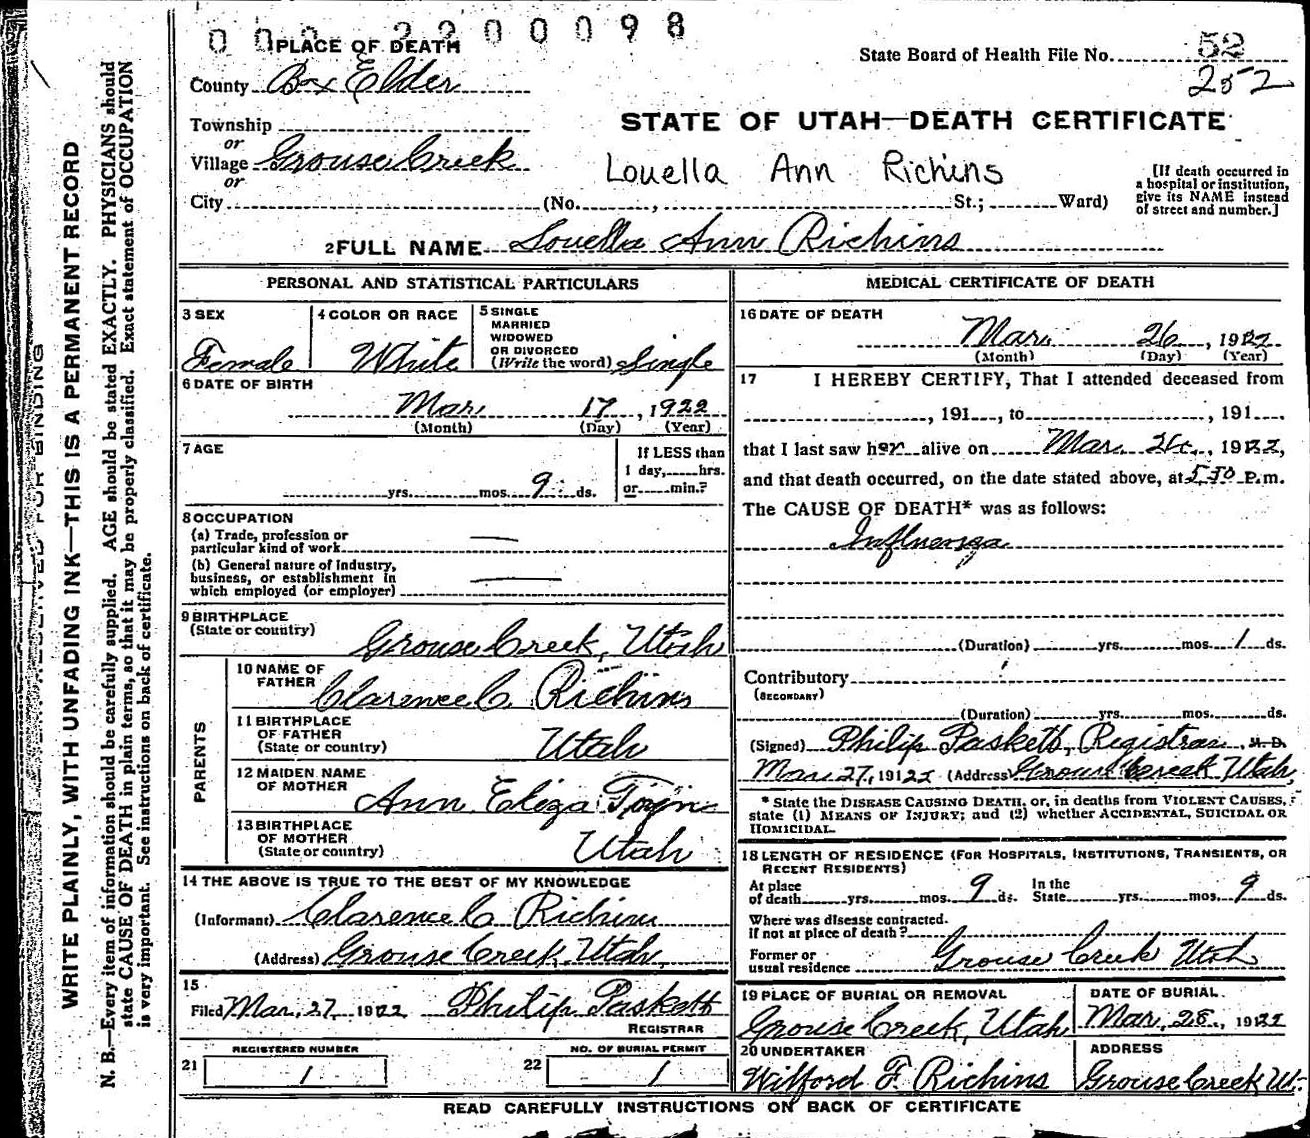 0 0 2 2 2 0 0 0 9 8
PLACE OF DEATH
State Board of Health File No. 52
252
County Box Elder
STATE OF UTAH—DEATH CERTIFICATE
Township
or
Village Grouse Creek
or
Louella Ann Richins
[If death occurred in
a hospital or institution,
give its NAME instead
of street and number.]
City (No. , St.; Ward)
2 FULL NAME Louella Ann Richins
PERSONAL AND STATISTICAL PARTICULARS
3 SEX
Female
4 COLOR OR RACE
White
5 SINGLE
MARRIED
WIDOWED
OR DIVORCED
(Write the word) Single
6 DATE OF BIRTH
Mar. 17, 1922
(Month) (Day) (Year)
7 AGE
yrs. mos. 9 ds.
If LESS than
1 day, hrs.
or min.?
8 OCCUPATION
(a) Trade, profession or
particular kind of work
(b) General nature of Industry,
business, or establishment in
which employed (or employer)
9 BIRTHPLACE
(State or country)
Grouse Creek, Utah
PARENTS
10 NAME OF
FATHER
Clarence C. Richins
11 BIRTHPLACE
OF FATHER
(State or country)
Utah
12 MAIDEN NAME
OF MOTHER
Ann Eliza
13 BIRTHPLACE
OF MOTHER
(State or country)
Utah
14 THE ABOVE IS TRUE TO THE BEST OF MY KNOWLEDGE
(Informant) Clarence C Richins
(Address) Grouse Creek, Utah,
15
Filed Mar. 27, 1922 Philip Paskett
REGISTRAR
REGISTERED NUMBER
21 1
NO. OF BURIAL PERMIT
22 1
MEDICAL CERTIFICATE OF DEATH
16 DATE OF DEATH
Mar. 26, 1922
(Month) (Day) (Year)
17 I HEREBY CERTIFY, That I attended deceased from
, 191 , to , 191 .
that I last saw her alive on Mar. 26, 1922,
and that death occurred, on the date stated above, at 5.30 P.m.
The CAUSE OF DEATH* was as follows:
Influenza
(Duration) yrs. mos. 1 ds.
Contributory
(SECONDARY)
(Duration) yrs. mos. ds.
(Signed) Philip Paskett, Registrar, M. D.
Mar 27, 1922 (Address) Grouse Creek Utah,
* State the DISEASE CAUSING DEATH, or, in deaths from VIOLENT CAUSES,
state (1) MEANS OF INJURY; and (2) whether ACCIDENTAL, SUICIDAL OR
HOMICIDAL.
18 LENGTH OF RESIDENCE (FOR HOSPITALS, INSTITUTIONS, TRANSIENTS, OR
RECENT RESIDENTS)
At place
of death yrs. mos. 9 ds.
In the
State yrs. mos. 9 ds.
Where was disease contracted.
If not at place of death?
Former or
usual residence Grouse Creek Utah
19 PLACE OF BURIAL OR REMOVAL
Grouse Creek, Utah
DATE OF BURIAL
Mar. 28, 1922
20 UNDERTAKER
Wilford F. Richins
ADDRESS
Grouse Creek Ut.
READ CAREFULLY INSTRUCTIONS ON BACK OF CERTIFICATE
RESERVED FOR BINDING
WRITE PLAINLY, WITH UNFADING INK—THIS IS A PERMANENT RECORD
N. B.—Every item of information should be carefully supplied. AGE should be stated EXACTLY. PHYSICIANS should
state CAUSE OF DEATH in plain terms, so that it may be properly classified. Exact statement of OCCUPATION
is very important. See instructions on back of certificate.